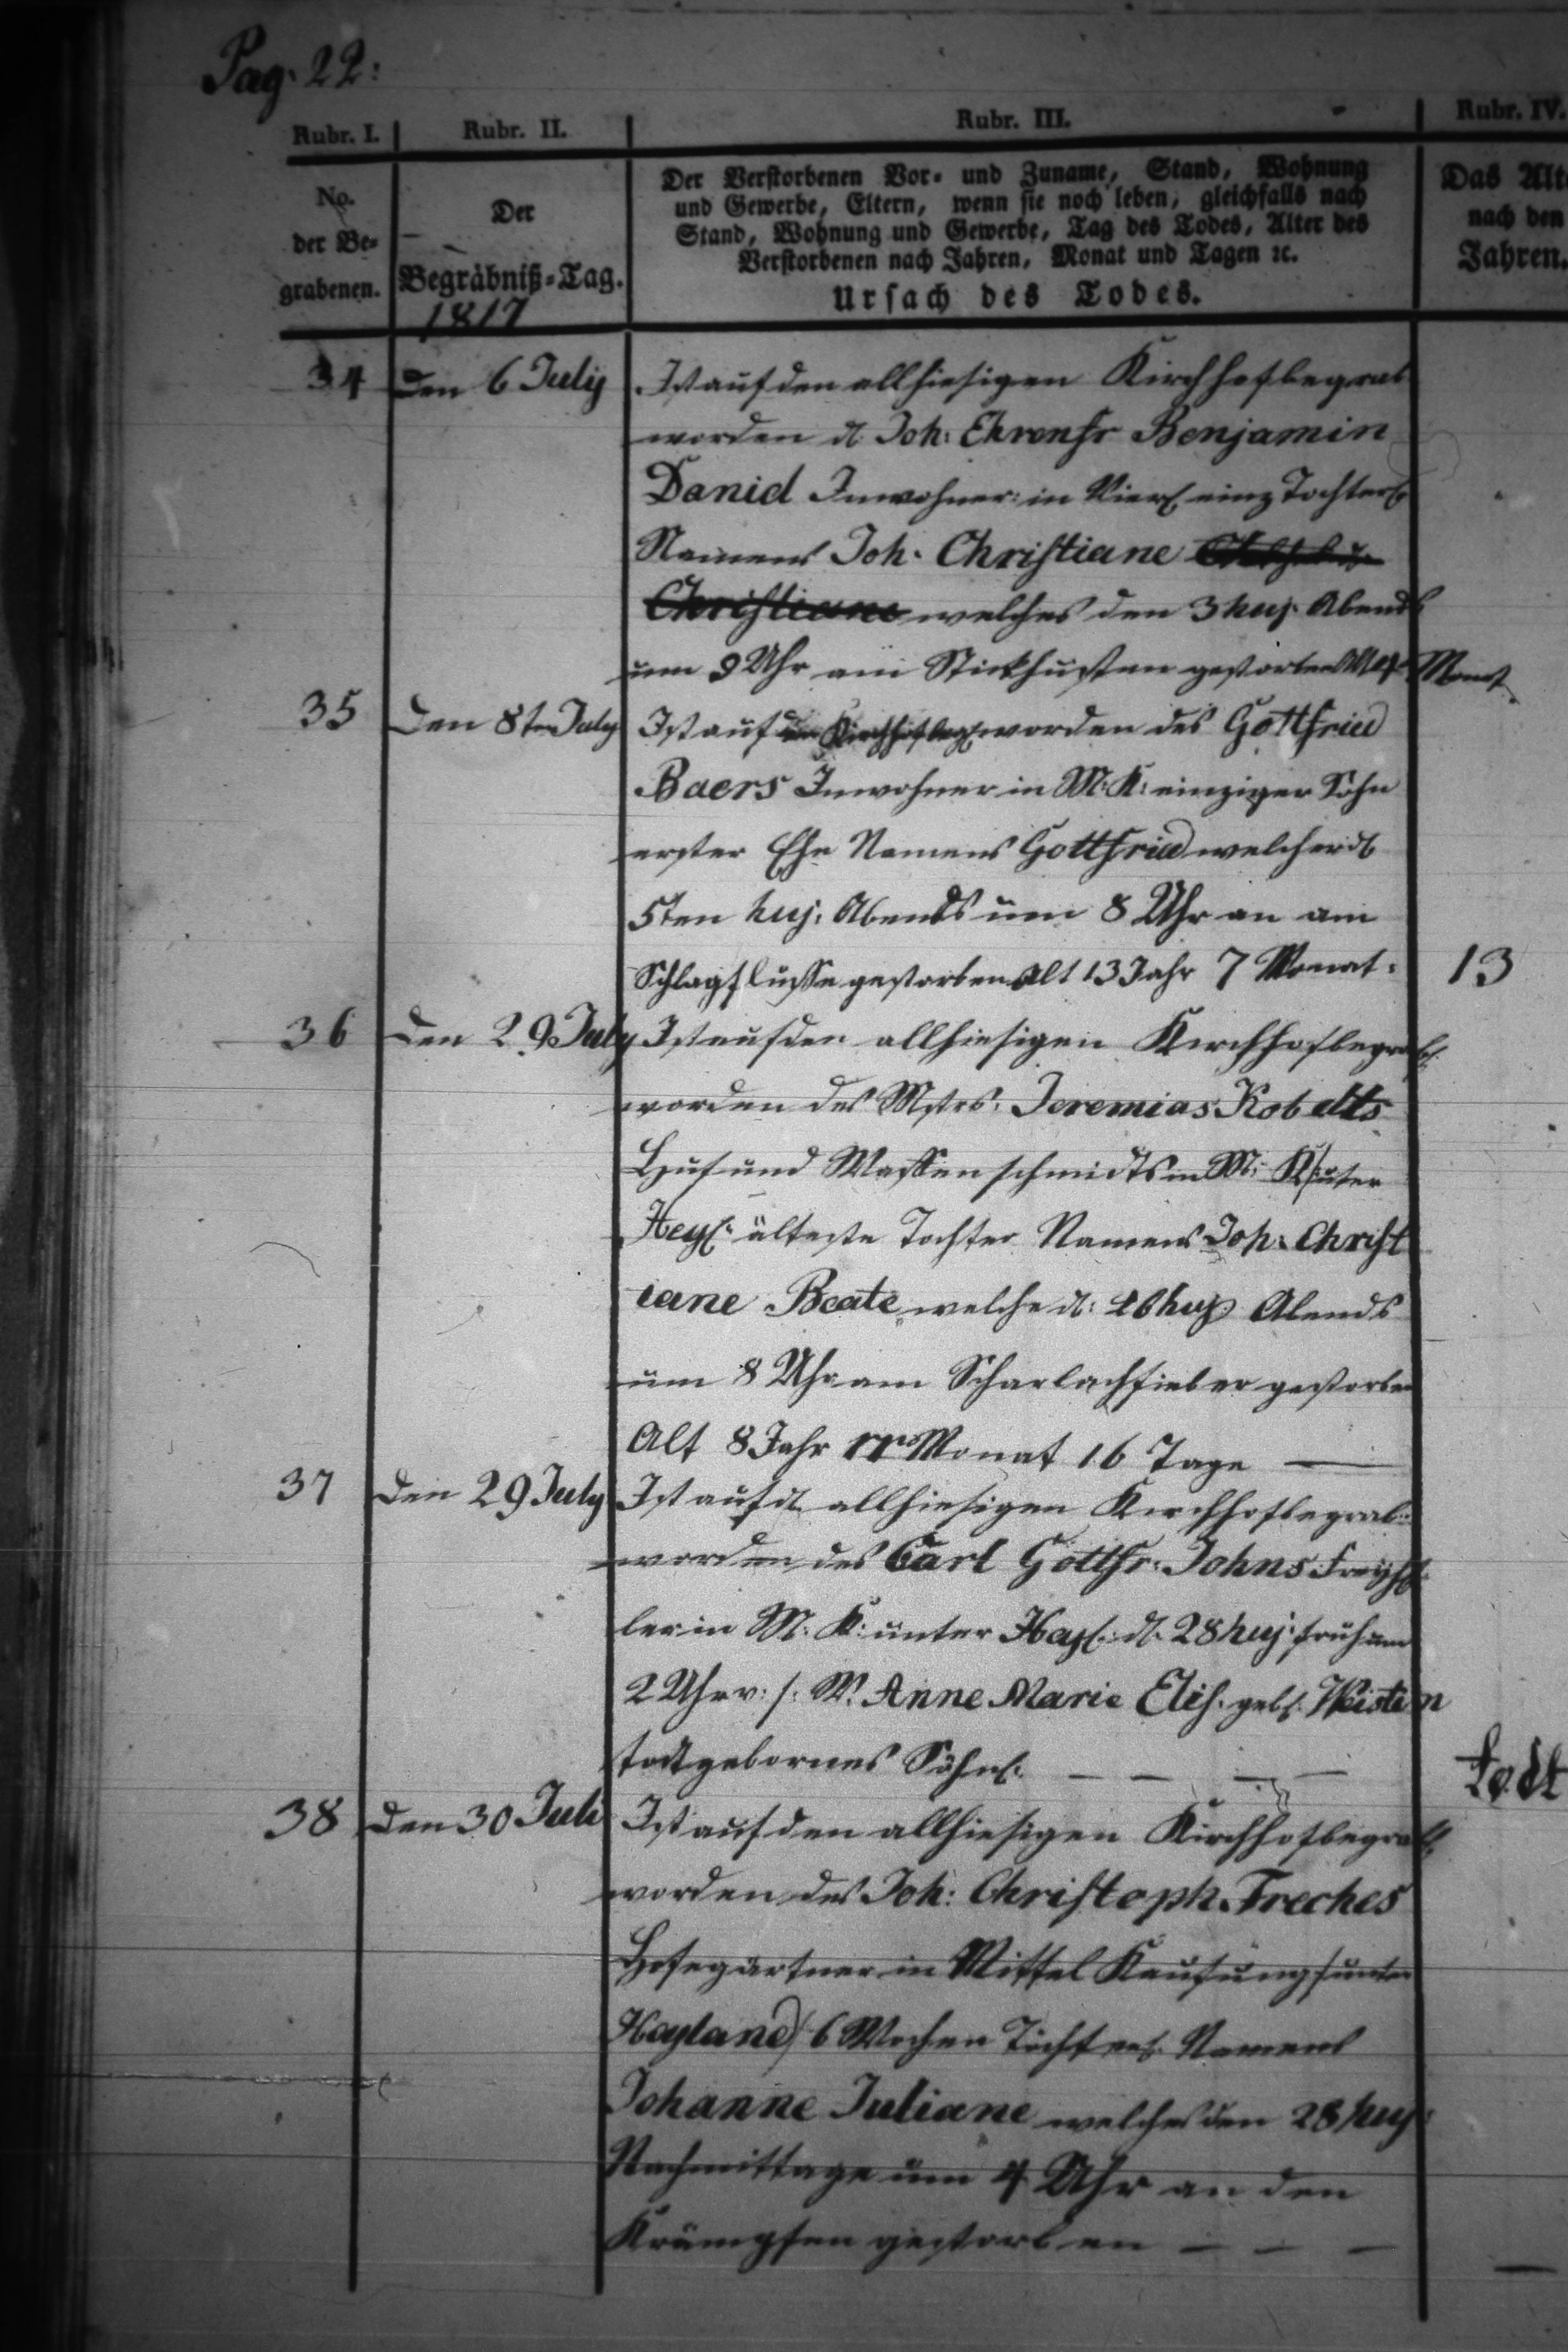 Pag. 22:
Rubr. I. Rubr. II. Rubr. III. Rubr. IV.
No. der Be- grabenen.
Der Begräbniß-Tag. 1817
Der Verstorbenen Vor- und Zuname, Stand, Wohnung
und Gewerbe, Eltern, wenn sie noch leben, gleichfalls nach
Stand, Wohnung und Gewerbe, Tag des Todes, Alter des
Verstorbenen nach Jahren, Monat und Tagen ꝛc.
Ursach des Todes.
Das Alt
nach den
Jahren.
34 Den 6 July Ist auf den allhiesigen Kirchhof begrab
worden d. Joh: Ehrenfr Benjamin
Daniel Inwohner: in einz Tochterl
Namens Joh. Christiane
Christiane welches den 3 huj. Abends
um 9 Uhr am Stickhusten gestorben Monat
35 Den 8ten July Ist auf den Kirchhof begr worden des Gottfried
Baers Inwohner in M: K: einziger Sohn
erster Ehe Namens Gottfried welcher d
5ten huj. Abends um 8 Uhr an am
Schlagflusse gestorben Alt 13 Jahr 7 Monat: 13
36 Den 29 July Ist auf den allhiesigen Kirchhof begrab
worden des Mstrs: Jeremias Kobelts
Huf und Waffenschmidts in M: K unter
Heyl: älteste Tochter Namens Joh. Christ
iane Beate, welche d: 26 huj Abends
um 8 Uhr am Scharlachfieber gestorben
Alt 8 Jahr Monat 16 Tage —
37 Den 29 July Ist auf d allhiesigen Kirchhof begrab:
worden des Carl Gottfr: Johns Freyh
ler in M: K: unter Hayl: d. 28 huj: früh um
2 Uhr v: s. W. Anne Marie Elis. geb.
todtgebornes Söhnl. — — — — todt
38 Den 30 Juli Ist auf den allhiesigen Kirchhof begrab
worden des Joh: Christoph Freches
Hofegärtner in Mittel Kauffung unter
Hayland 6 Wochen Töchterl. Namens
Johanne Juliane welches den 28 huj:
Nachmittage um 4 Uhr an den
Krämpfen gestorben — — — —